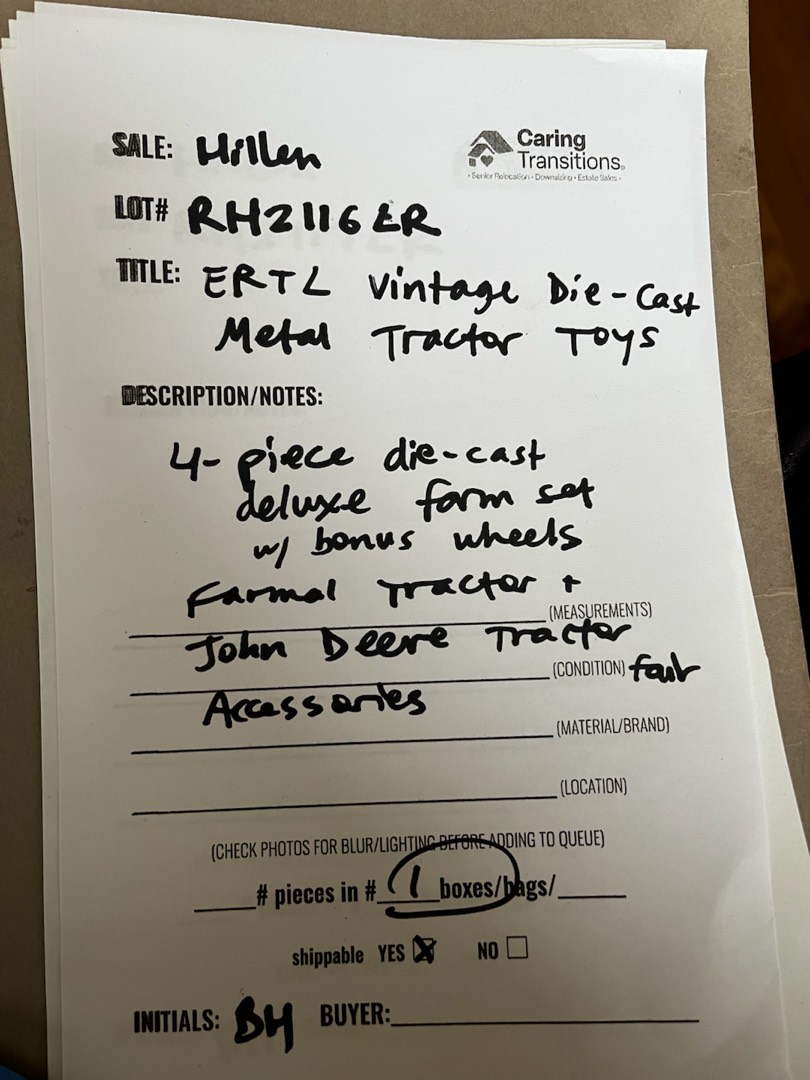 Caring
Transitions®
• Senior Relocation • Downsizing • Estate Sales •
SALE: Hillen
LOT# RH2116ER
TITLE: ERTL Vintage Die-Cast
Metal Tractor Toys
DESCRIPTION/NOTES:
4-piece die-cast
deluxe farm set
w/ bonus wheels
Farmal Tractor +
(MEASUREMENTS)
John Deere Tractor
(CONDITION) fair
Accessories
(MATERIAL/BRAND)
(LOCATION)
(CHECK PHOTOS FOR BLUR/LIGHTING BEFORE ADDING TO QUEUE)
____# pieces in #_1_boxes/bags/____
shippable YES ☒ NO ☐
INITIALS: BH BUYER:____